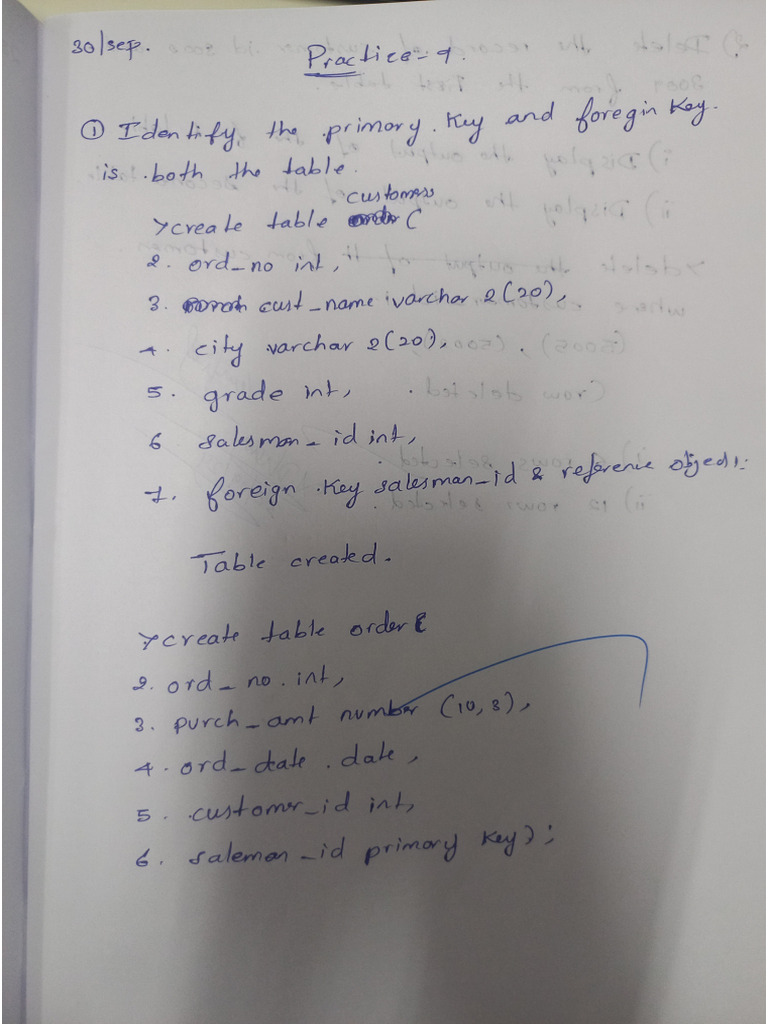 30/sep.
Practice-9.
① Identify the primary key and foregin key.
is both the table.
customers
>create table (
2. ord_no int,
3. cust_name varchar 2(20),
4. city varchar 2(20),
5. grade int,
6 salesman_id int,
7. foreign key salesman_id & reference
Table created.
>create table order(
2. ord_no int,
3. purch_amt number (10,8),
4. ord_date date,
5. customer_id int,
6. saleman_id primary key);